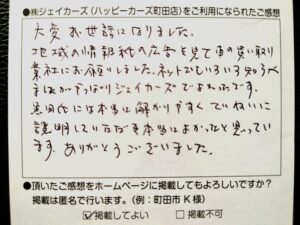 ●㈱ジェイカーズ（ハッピーカーズ町田店）をご利用になられたご感想
大変お世話になりました。
地域の情報紙の広告を見て車の買い取り
業社にお願いしました。ネットでもいろいろ知らべ
ましたがやっぱりジェイカーズで
には本当に解かりやすくていねいに
説明していただき本当によかったと思ってい
ます。ありがとうございました。
●頂いたご感想をホームページに掲載してもよろしいですか？
掲載は匿名で行います。（例：町田市 K 様）
☑掲載してよい　□掲載不可